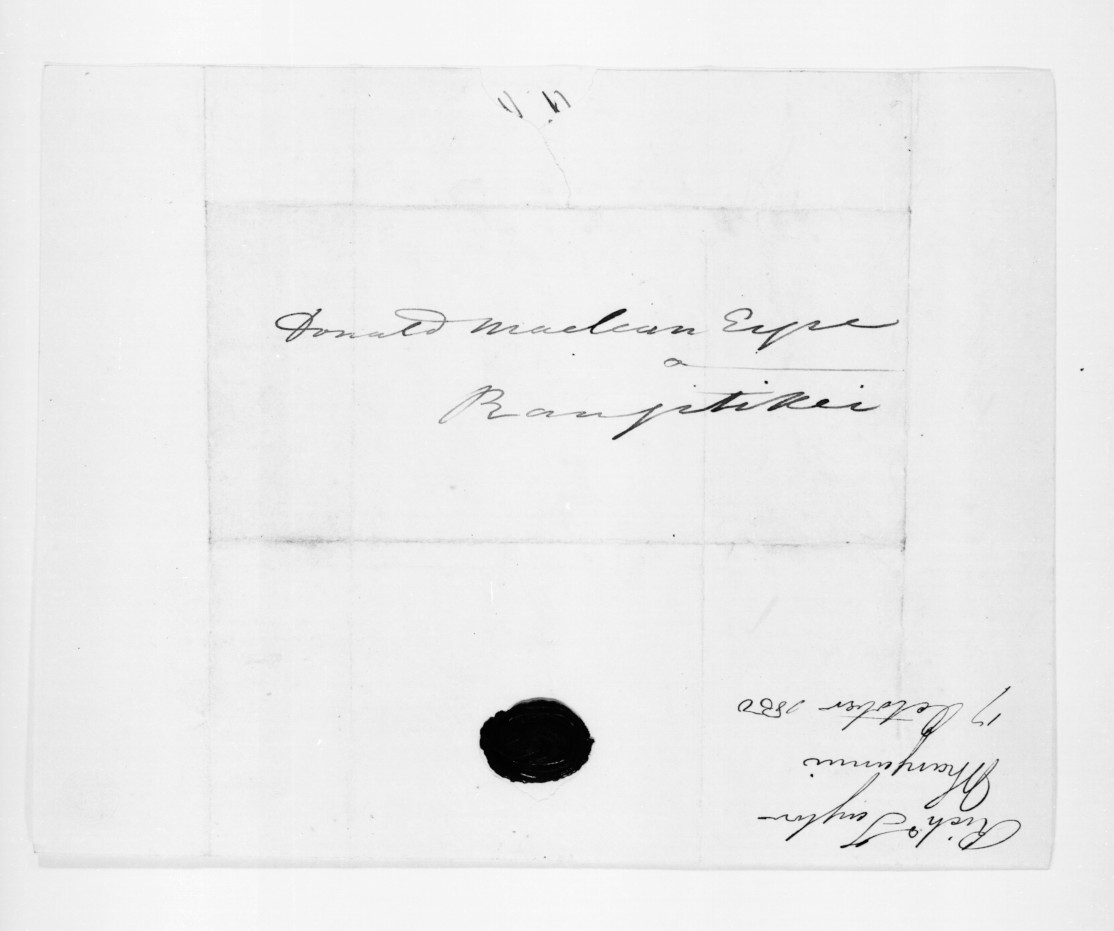 Donald Maclean Esqre
Rangitikei
Richd Taylor
Whanganui
17 October 1850